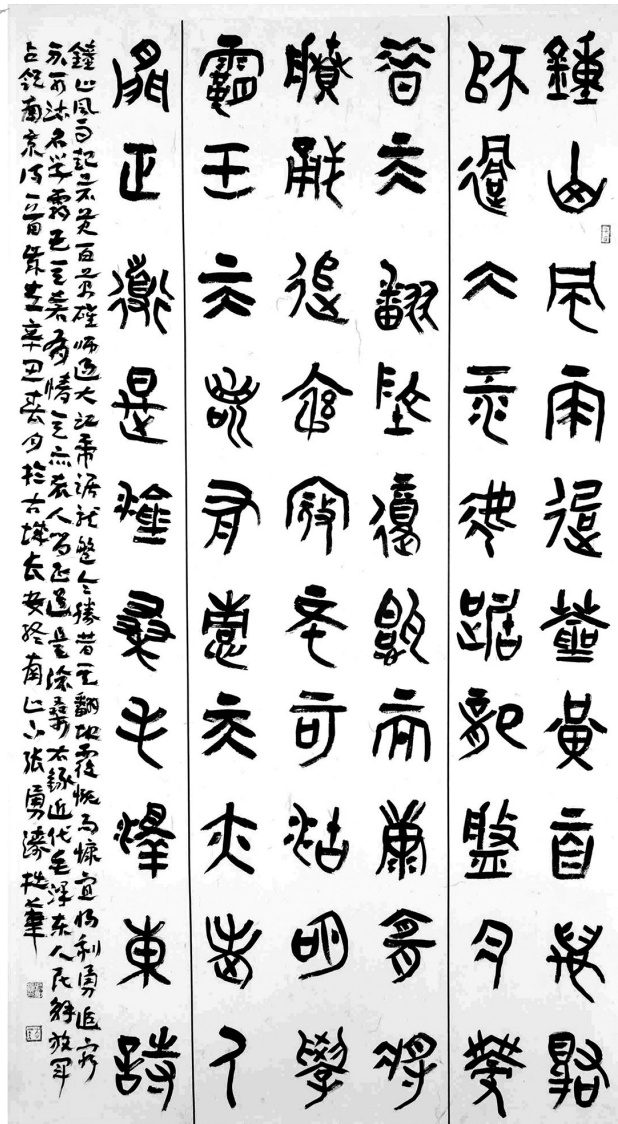 鍾山風雨起蒼黃百萬雄
師過大江虎踞龍盤今勝
昔天翻地覆慨而慷宜將
賸勇追窮寇不可沽名學
霸王天若有情天亦老人
間正道是滄桑毛澤東詩
鐘山風雨起蒼黃百萬雄师过大江虎踞龍盤今勝昔天翻地覆慨而慷宜將剩勇追窮
寇不可沽名学霸王天若有情天亦老人间正道是滄桑右錄近代毛泽东人民解放军
占領南京诗一首歲在辛丑春月於古城長安終南山下張勇濤拙筆